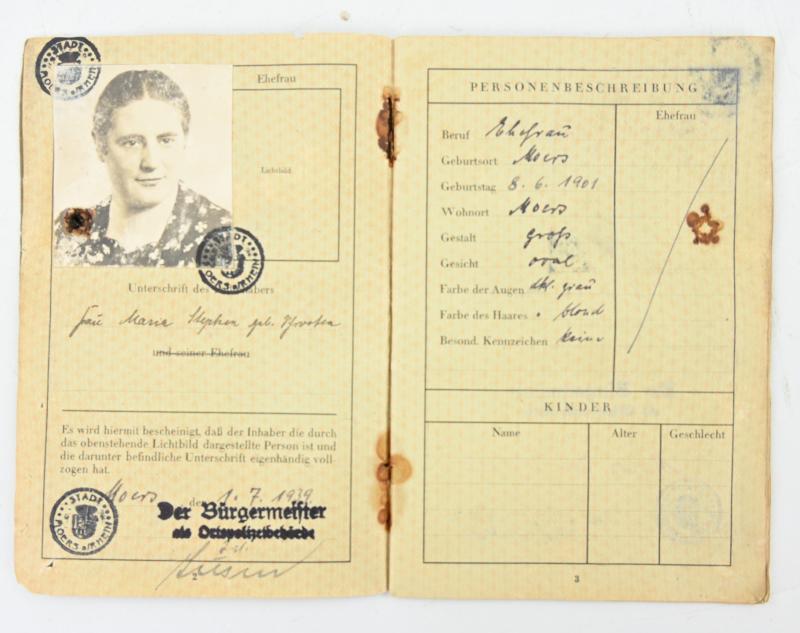 STADT
MOERS a/RHEIN
Ehefrau
Lichtbild
STADT
MOERS a/RHEIN
Unterschrift des habers
Frau Maria Stephan geb.
und seiner Ehefrau
Es wird hiermit bescheinigt, daß der Inhaber die durch
das obenstehende Lichtbild dargestellte Person ist und
die darunter befindliche Unterschrift eigenhändig voll-
zogen hat.
Moers den 1. 7. 1939
STADT
MOERS a/RHEIN
Der Bürgermeister
als Ortspolizeibehörde
PERSONENBESCHREIBUNG
Ehefrau
Beruf Ehefrau
Geburtsort Moers
Geburtstag 8. 6. 1901
Wohnort Moers
Gestalt groß
Gesicht oval
Farbe der Augen dkl. grau
Farbe des Haares blond
Besond. Kennzeichen keine
KINDER
Name Alter Geschlecht
3